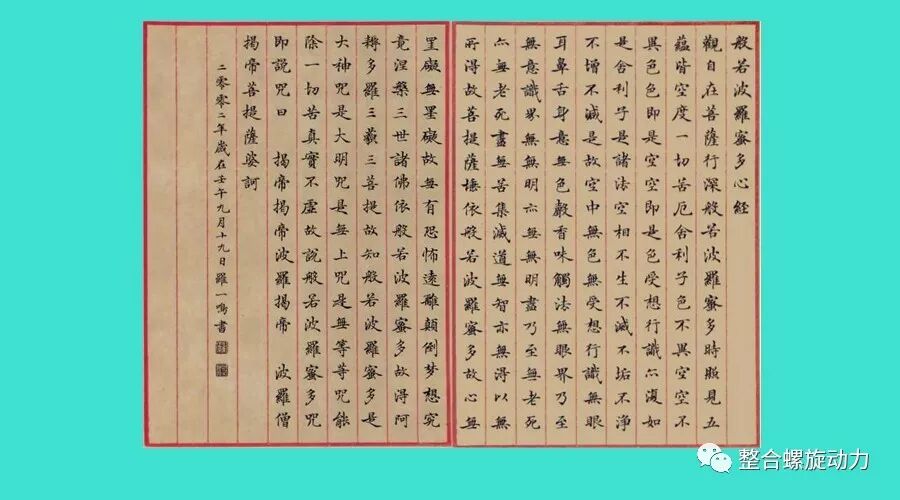 般若波羅蜜多心經
觀自在菩薩行深般若波羅蜜多時照見五
蘊皆空度一切苦厄舍利子色不異空空不
異色色即是空空即是色受想行識亦復如
是舍利子是諸法空相不生不滅不垢不淨
不增不減是故空中無色無受想行識無眼
耳鼻舌身意無色聲香味觸法無眼界乃至
無意識界無無明亦無無明盡乃至無老死
亦無老死盡無苦集滅道無智亦無得以無
所得故菩提薩埵依般若波羅蜜多故心無
罣礙無罣礙故無有恐怖遠離顛倒梦想究
竟涅槃三世諸佛依般若波羅蜜多故得阿
耨多羅三藐三菩提故知般若波羅蜜多是
大神咒是大明咒是無上咒是無等等咒能
除一切苦真實不虛故說般若波羅蜜多咒
即說咒曰 揭帝揭帝波羅揭帝 波羅僧
揭帝菩提薩婆訶
二零零二年歲在壬午九月十九日羅一鳴書
整合螺旋动力